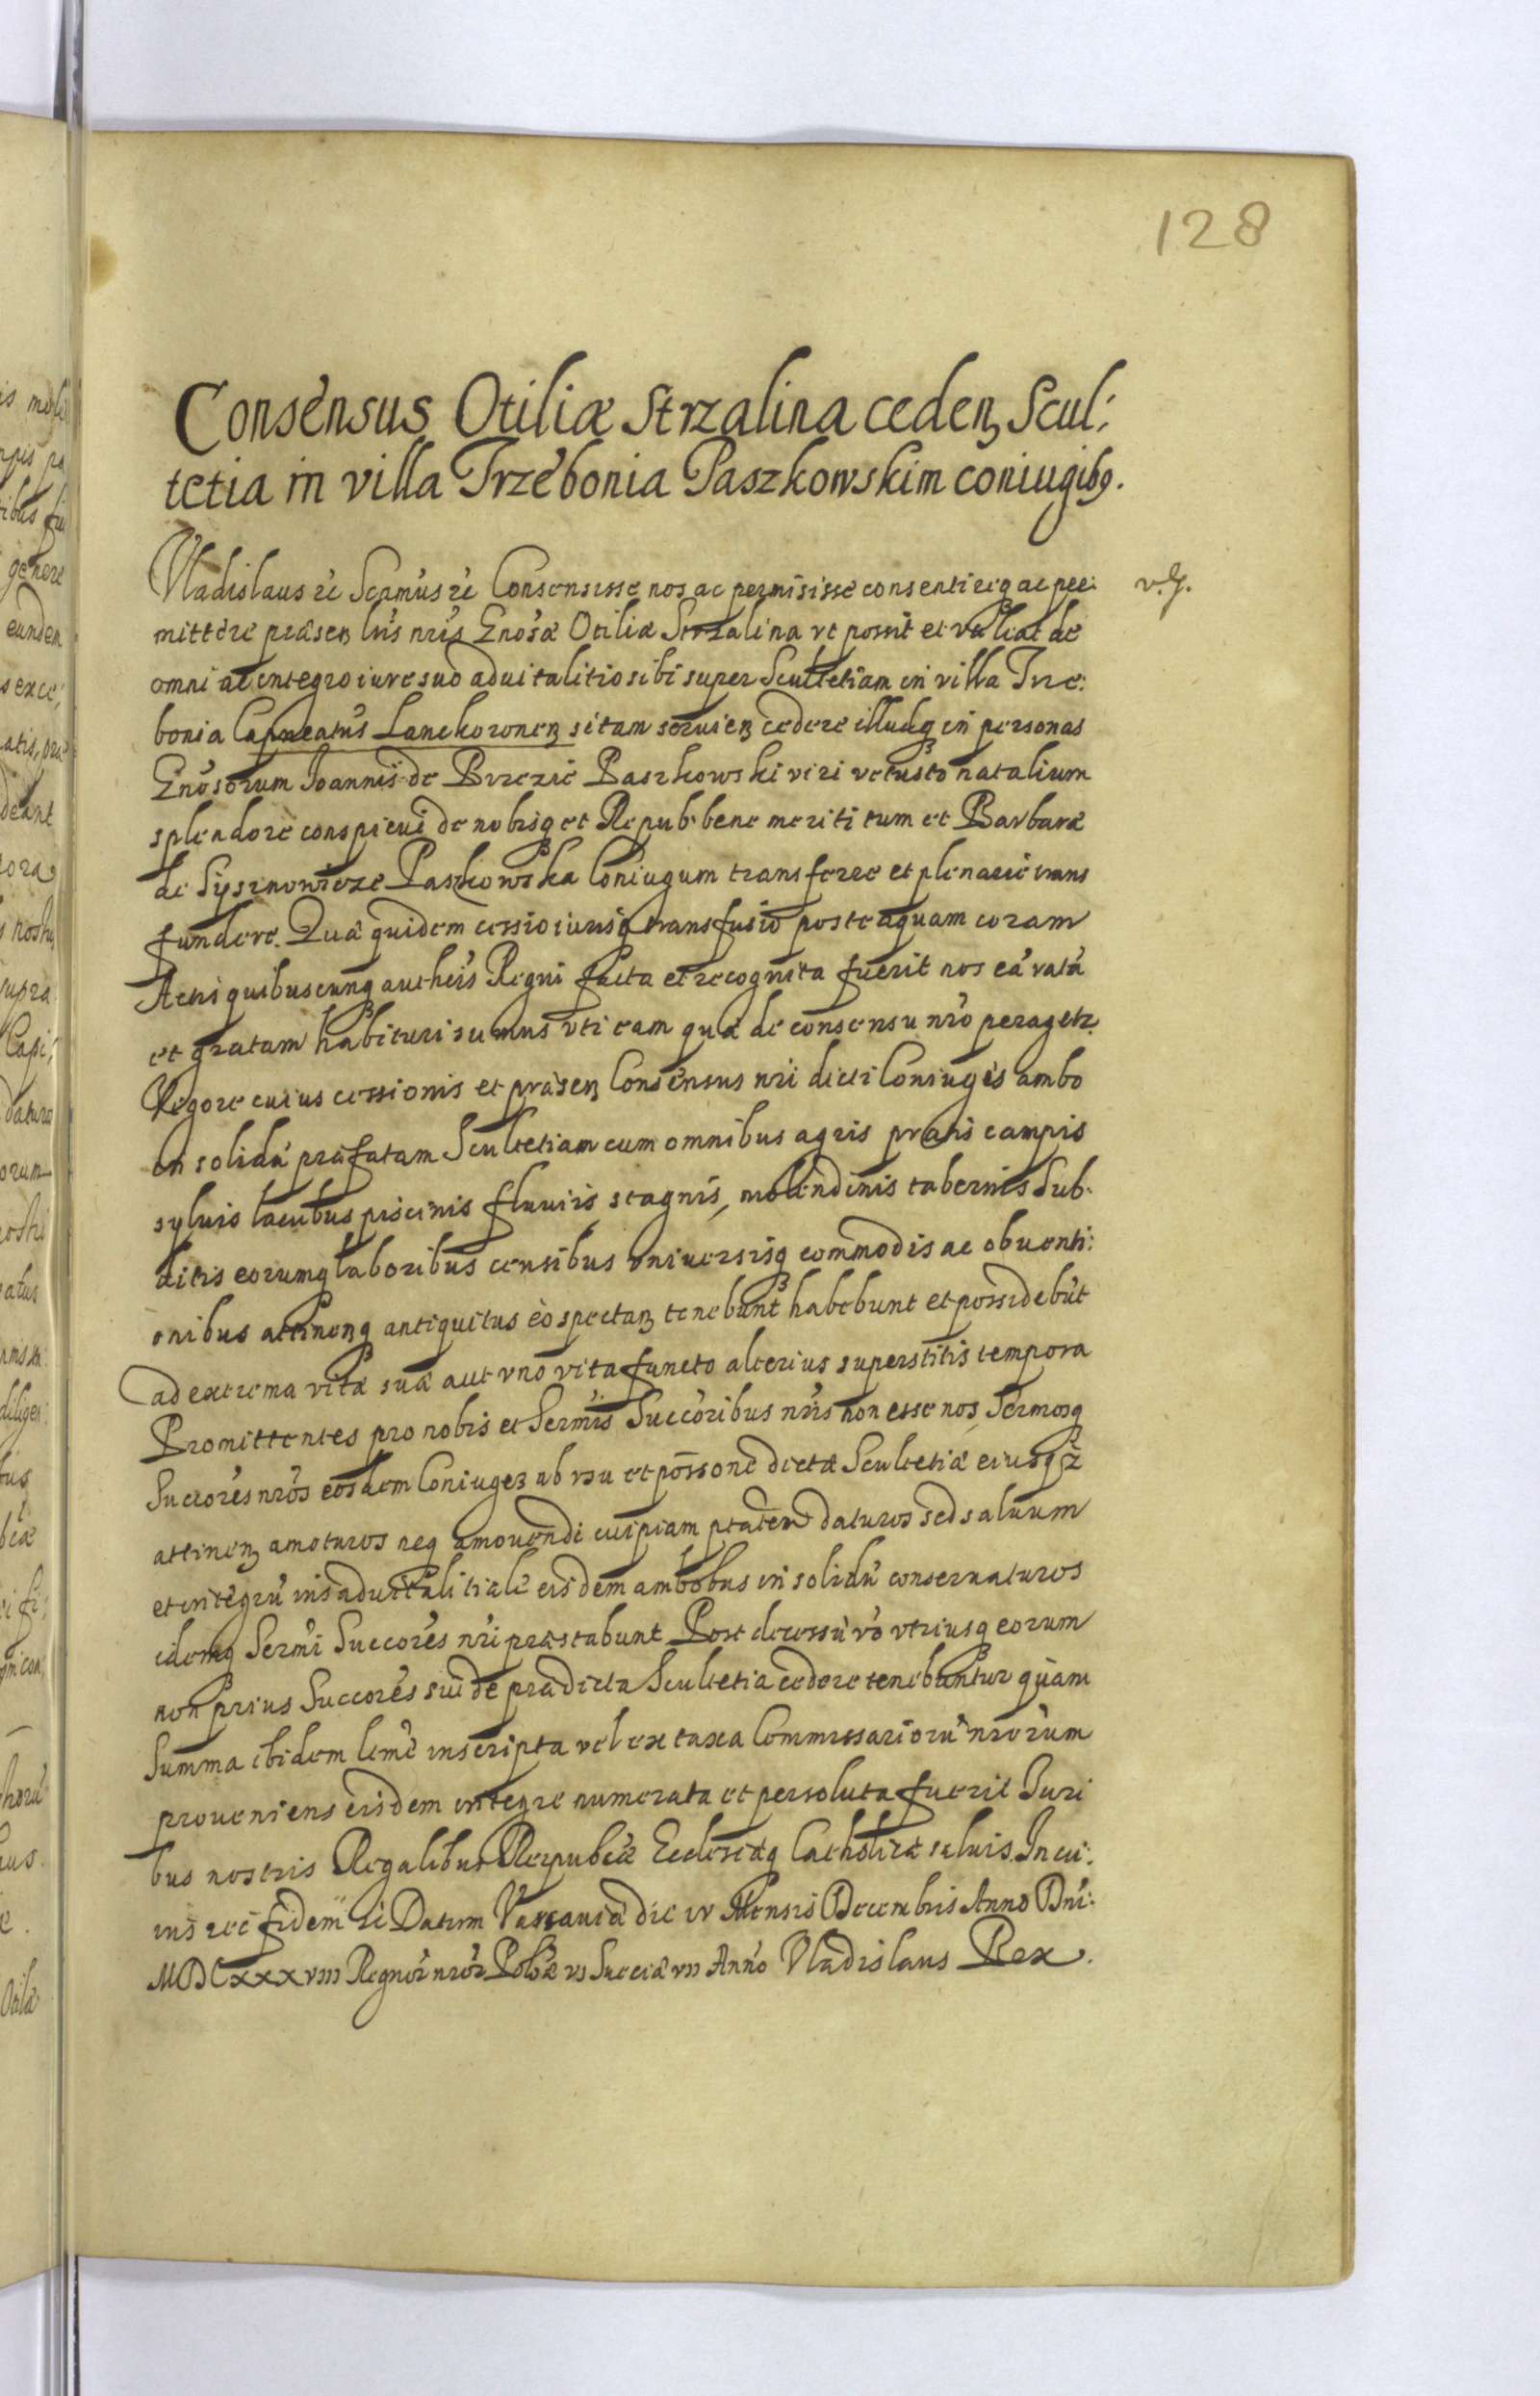 128
Consensus Otiliæ Strzalina cedenꝫ Scul:
tetia in villa Trzebonia Paszkowskim coniugibꝰ.
Vladislaus &c Scimus &c Consensisse nos ac permisisse consentireqꝫ ac per:
v. g.
mittere præsenꝫ lris nris Gnosæ Otiliæ Strzalina vt possit et valeat de
omni ac integro iure suo aduitalitio sibi super Scultetiam in villa Trze:
bonia Capneatus Lanckoronenꝫ sitam seruienꝫ cedere illudqꝫ in personas
Gnosorum Joannis de Brzezie Paszkowski viri vetusto natalium
splendore conspicui de nobisqꝫ et Repub. bene meriti tum et Barbaræ
de Paszkowska Coniugum transferre et plenarie trans
fundere. Quæ quidem cessio iurisqꝫ transfusio posteaquam coram
Actis quibuscunqꝫ authcis Regni facta et recognita fuerit nos eá ratá
et gratam habituri sumus vti eam quæ de consensu nro peragetr.
Vigore cuius cessionis et præsenꝫ Consensus nri dicti Coniuges ambo
in solidú præfatam Scultetiam cum omnibus agris pratis campis
syluis lacubus piscinis fluuiis stagnis, molendinis tabernis Sub.
ditis eorumqꝫ laboribus censibus vniuersisqꝫ commodis ac obuenti:
onibus attinenꝫqꝫ antiquitus eò spectanꝫ tenebunt habebunt et possidebút
ad extrema vitæ suæ aut vno vita functo alterius superstitis tempora
Promittentes pro nobis et Sermis Succoribus nris non esse nos, Sermosqꝫ
Succores nros eosdem Coniuges ab vsu et possone dictæ Scultetiæ eiusqꝫ
attinenꝫ amoturos neqꝫ amouendi cuipiam ptatem daturos sed saluum
et integrú ius aduitalitiale eisdem ambobus in solidú conseruaturos
idemqꝫ Sermi Succores nri præstabunt Post decessú vo vtriusqꝫ eorum
non prius Succores sui de prædicta Scultetia cedere tenebuntur quàm
Summa ibidem lcme inscripta vel ex taxa Commissariorú nrorum
proueniens eisdem integre numerata et persoluta fuerit Juri
bus nostris Regalibus Reipubcæ Ecclesiæqꝫ Catholicæ saluis. In cui:
ius rei fidem &c Datum Varsauiæ die IV Mensis Decembris Anno Dni.
MDCXXXVIII Regnor nror Polæ VI Sueciæ VII Anno Vladislaus Rex.